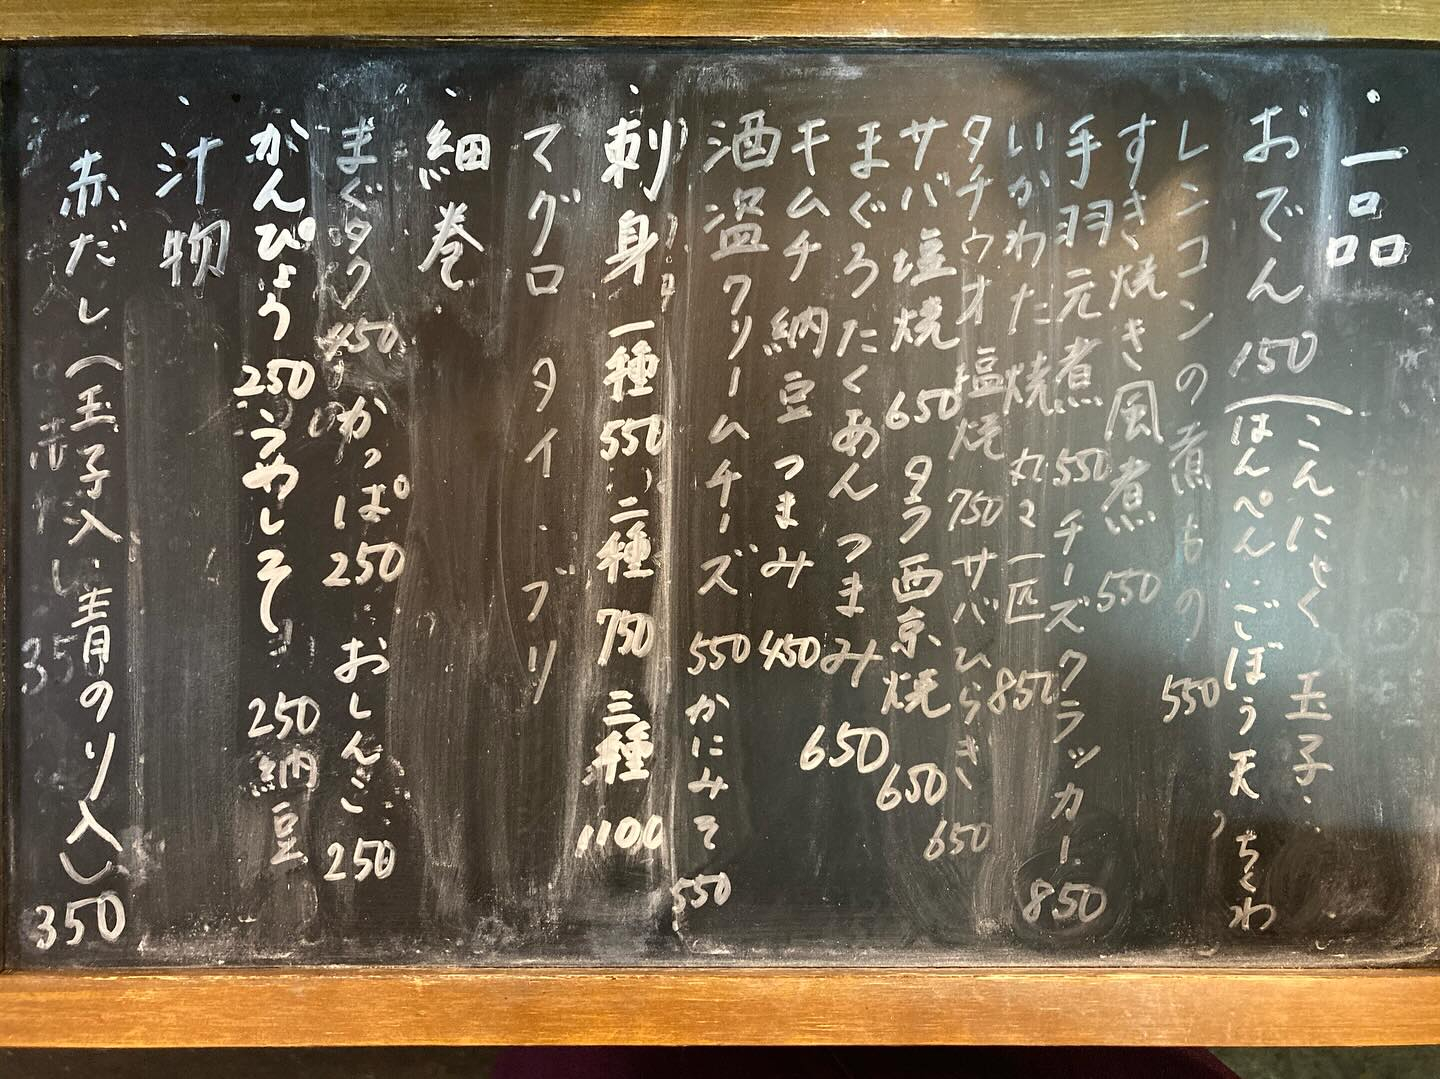 一品
おでん 150 (こんにゃく 玉子・
はんぺん・ごぼう天、ちくわ
レンコンの煮もの 550
すき焼き風煮 550
手羽元煮 550 チーズクラッカー 850
いかわた焼 丸々一匹 850
タチウオ塩焼 750 サバひらき 650
サバ塩焼 650 タラ西京焼 650
まぐろたくあんつまみ 650
キムチ納豆つまみ 450
酒盗クリームチーズ 550 かにみそ 550
刺身 一種 550 二種 750 三種 1100
マグロ タイ ブリ
細巻
まぐタク 450 かっぱ 250 おしんこ 250
かんぴょう 250 うめしそ 250 納豆
汁物
赤だし(玉子入・青のり入) 350